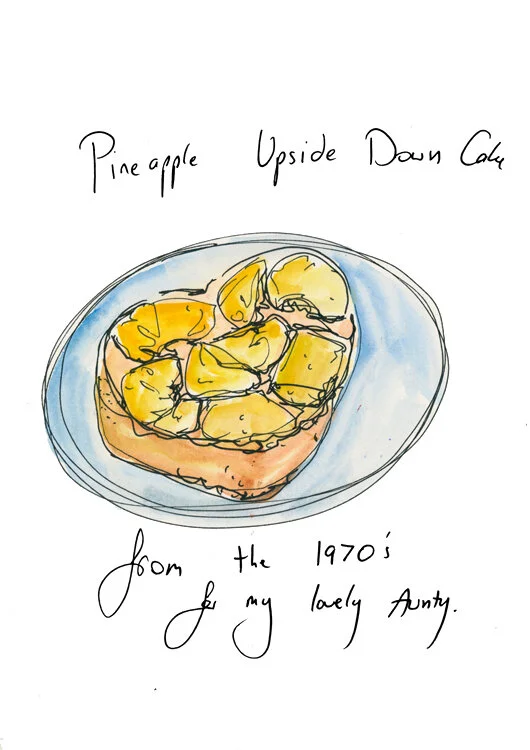 Pineapple Upside Down Cake
from the 1970's
for my lovely Aunty.